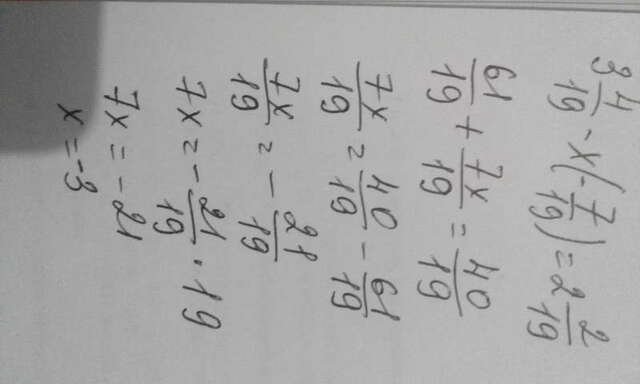 3 4/19 - x(-7/19) = 2 2/19
61/19 + 7x/19 = 40/19
7x/19 = 40/19 - 61/19
7x/19 = - 21/19
7x = - 21/19 · 19
7x = - 21
x = -3